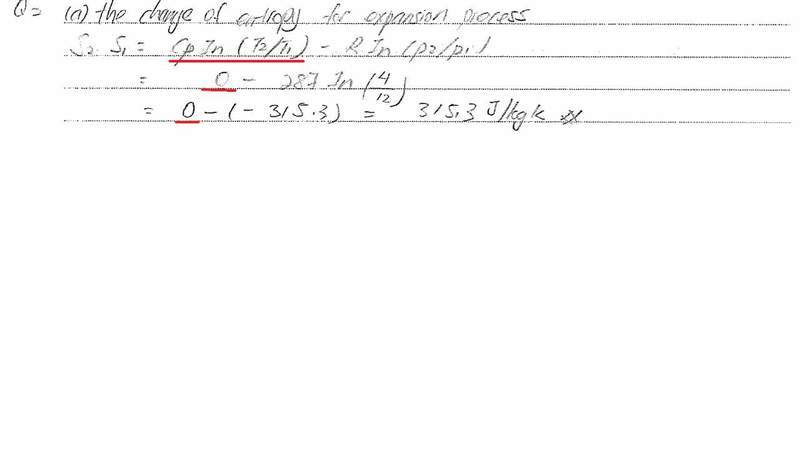 Q2 (a) the change of entropy for expansion process
S2 S1 = Cp In (T2/T1) - R In (p2/p1)
= 0 - 287 In (4/12)
= 0 - (- 315.3) = 315.3 J/kgk